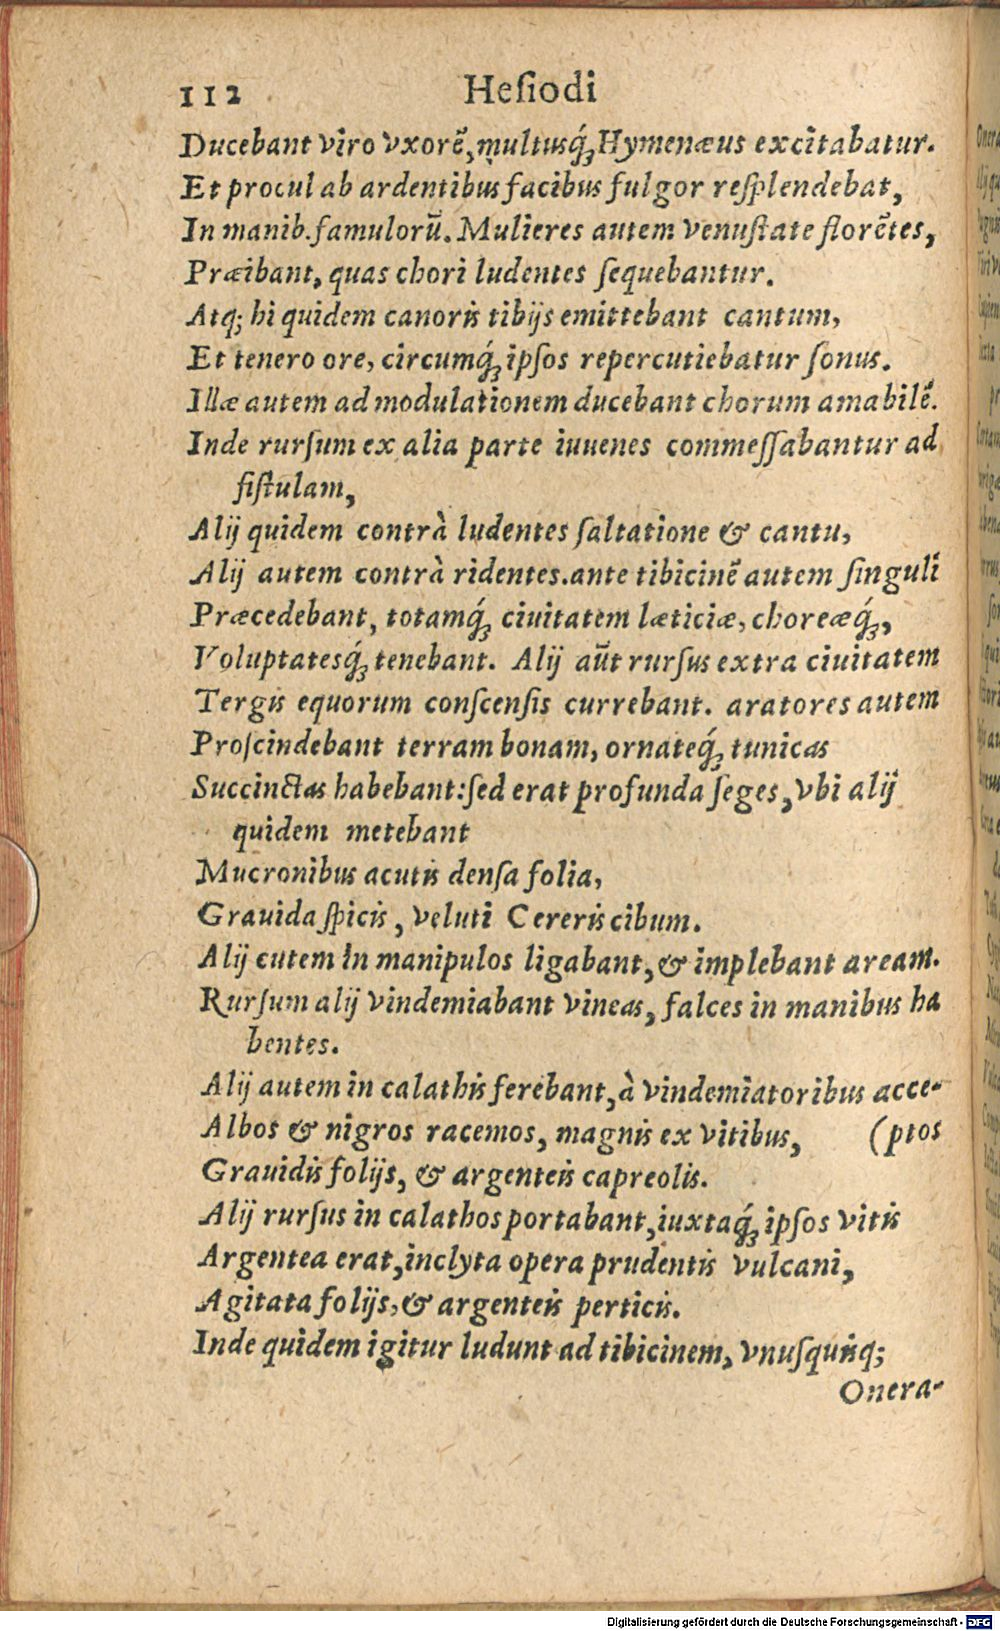 112 Heſiodi
Ducebant viro vxorē, multusq́ꝫ Hymenæus excitabatur.
Et procul ab ardentibus facibus fulgor reſplendebat,
In manib. famulorū. Mulieres autem venuſtate florētes,
Præibant, quas chori ludentes ſequebantur.
Atq; hi quidem canoris tibijs emittebant cantum,
Et tenero ore, circumq́ꝫ ipſos repercutiebatur ſonus.
Illæ autem ad modulationem ducebant chorum amabilē.
Inde rurſum ex alia parte iuuenes commeſſabantur ad
fiſtulam,
Alij quidem contrà ludentes ſaltatione & cantu,
Alij autem contrà ridentes. ante tibicinē autem ſinguli
Præcedebant, totamq́ꝫ ciuitatem læticiæ, choreæq́ꝫ,
Voluptatesq́ꝫ tenebant. Alij aūt rurſus extra ciuitatem
Tergis equorum conſcenſis currebant. aratores autem
Proſcindebant terram bonam, ornateq́ꝫ tunicas
Succinctas habebant: ſed erat profunda ſeges, vbi alij
quidem metebant
Mucronibus acutis denſa folia,
Grauida ſpicis, veluti Cereris cibum.
Alij eutem in manipulos ligabant, & implebant aream.
Rurſum alij vindemiabant vineas, falces in manibus ha
bentes.
Alij autem in calathis ferebant, à vindemiatoribus acce-
Albos & nigros racemos, magnis ex vitibus, (ptos
Grauidis folijs, & argenteis capreolis.
Alij rurſus in calathos portabant, iuxtaq́ꝫ ipſos vitis
Argentea erat, inclyta opera prudentis vulcani,
Agitata folijs, & argenteis perticis.
Inde quidem igitur ludunt ad tibicinem, vnuſquisq;
Onera-
Digitalisierung gefördert durch die Deutsche Forschungsgemeinschaft - DFG